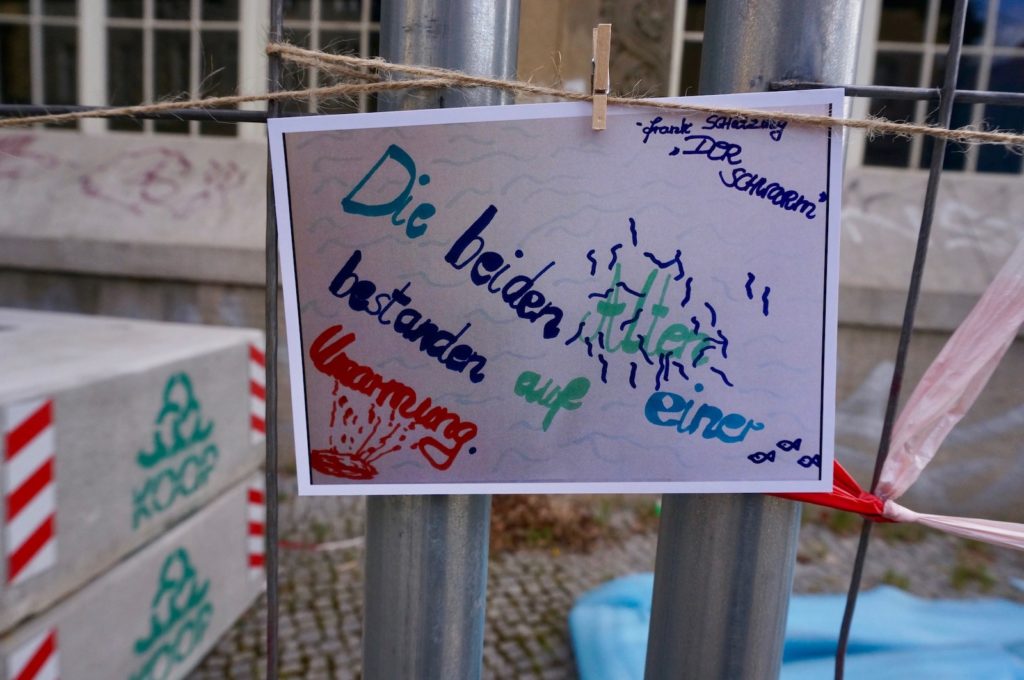 - frank SCHÄTZING
„DER
SCHWARM"
Die beiden Alten
bestanden auf einer
Umarmung.
KOOP
KOOP